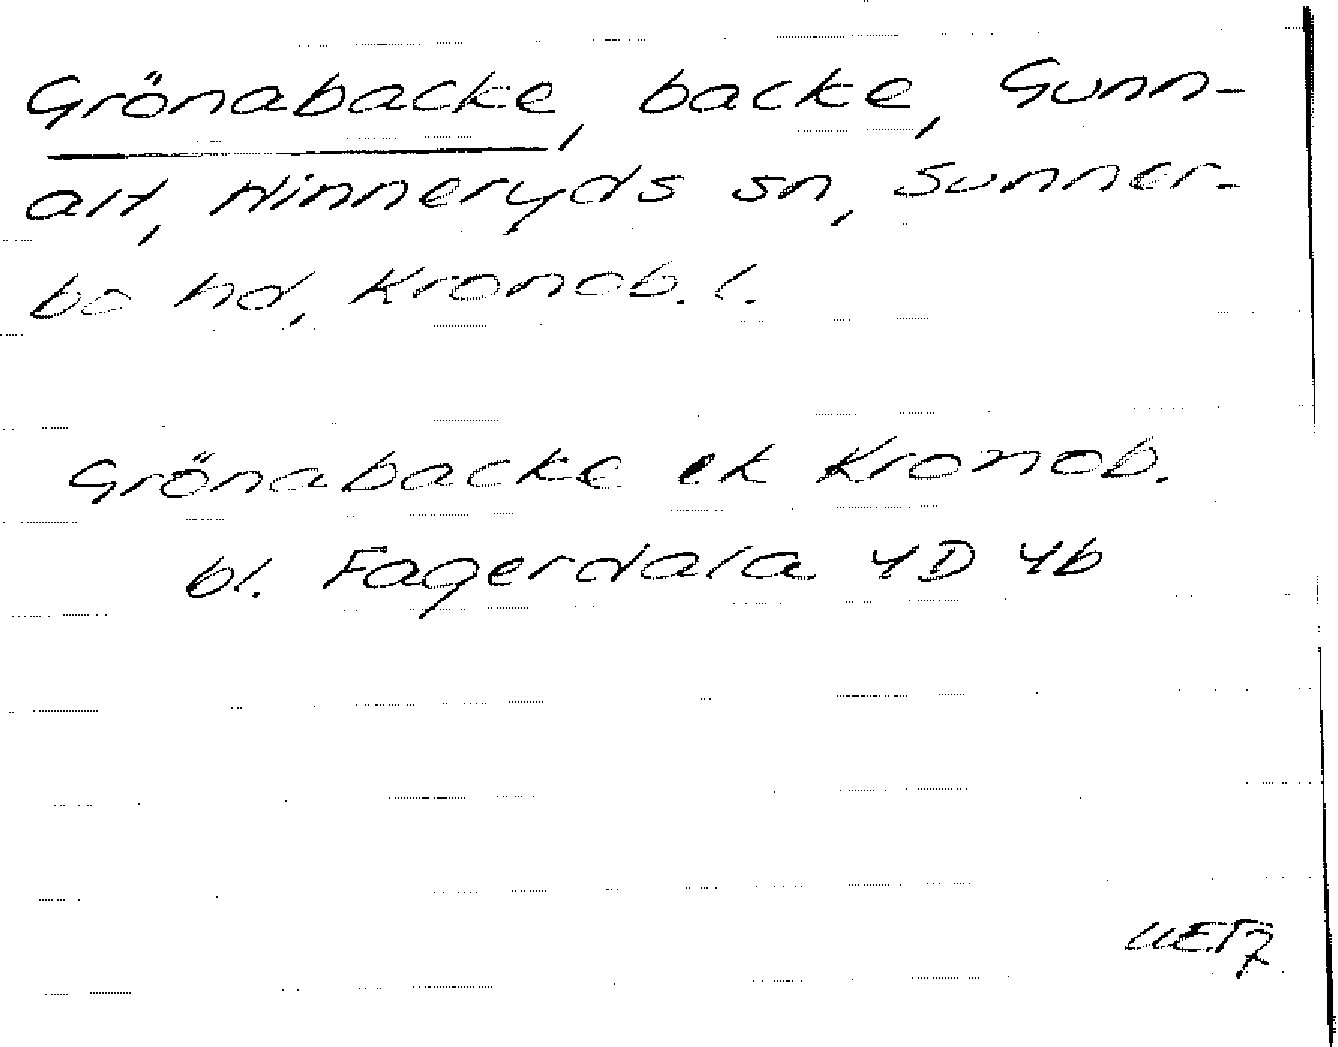 Grönabacke, backe, Gunn-
alt, Hinneryds sn, Sunner-
bo hd, Kronob. l.
Grönabacke ek Kronob.
bl. Fagerdala 4D 4b